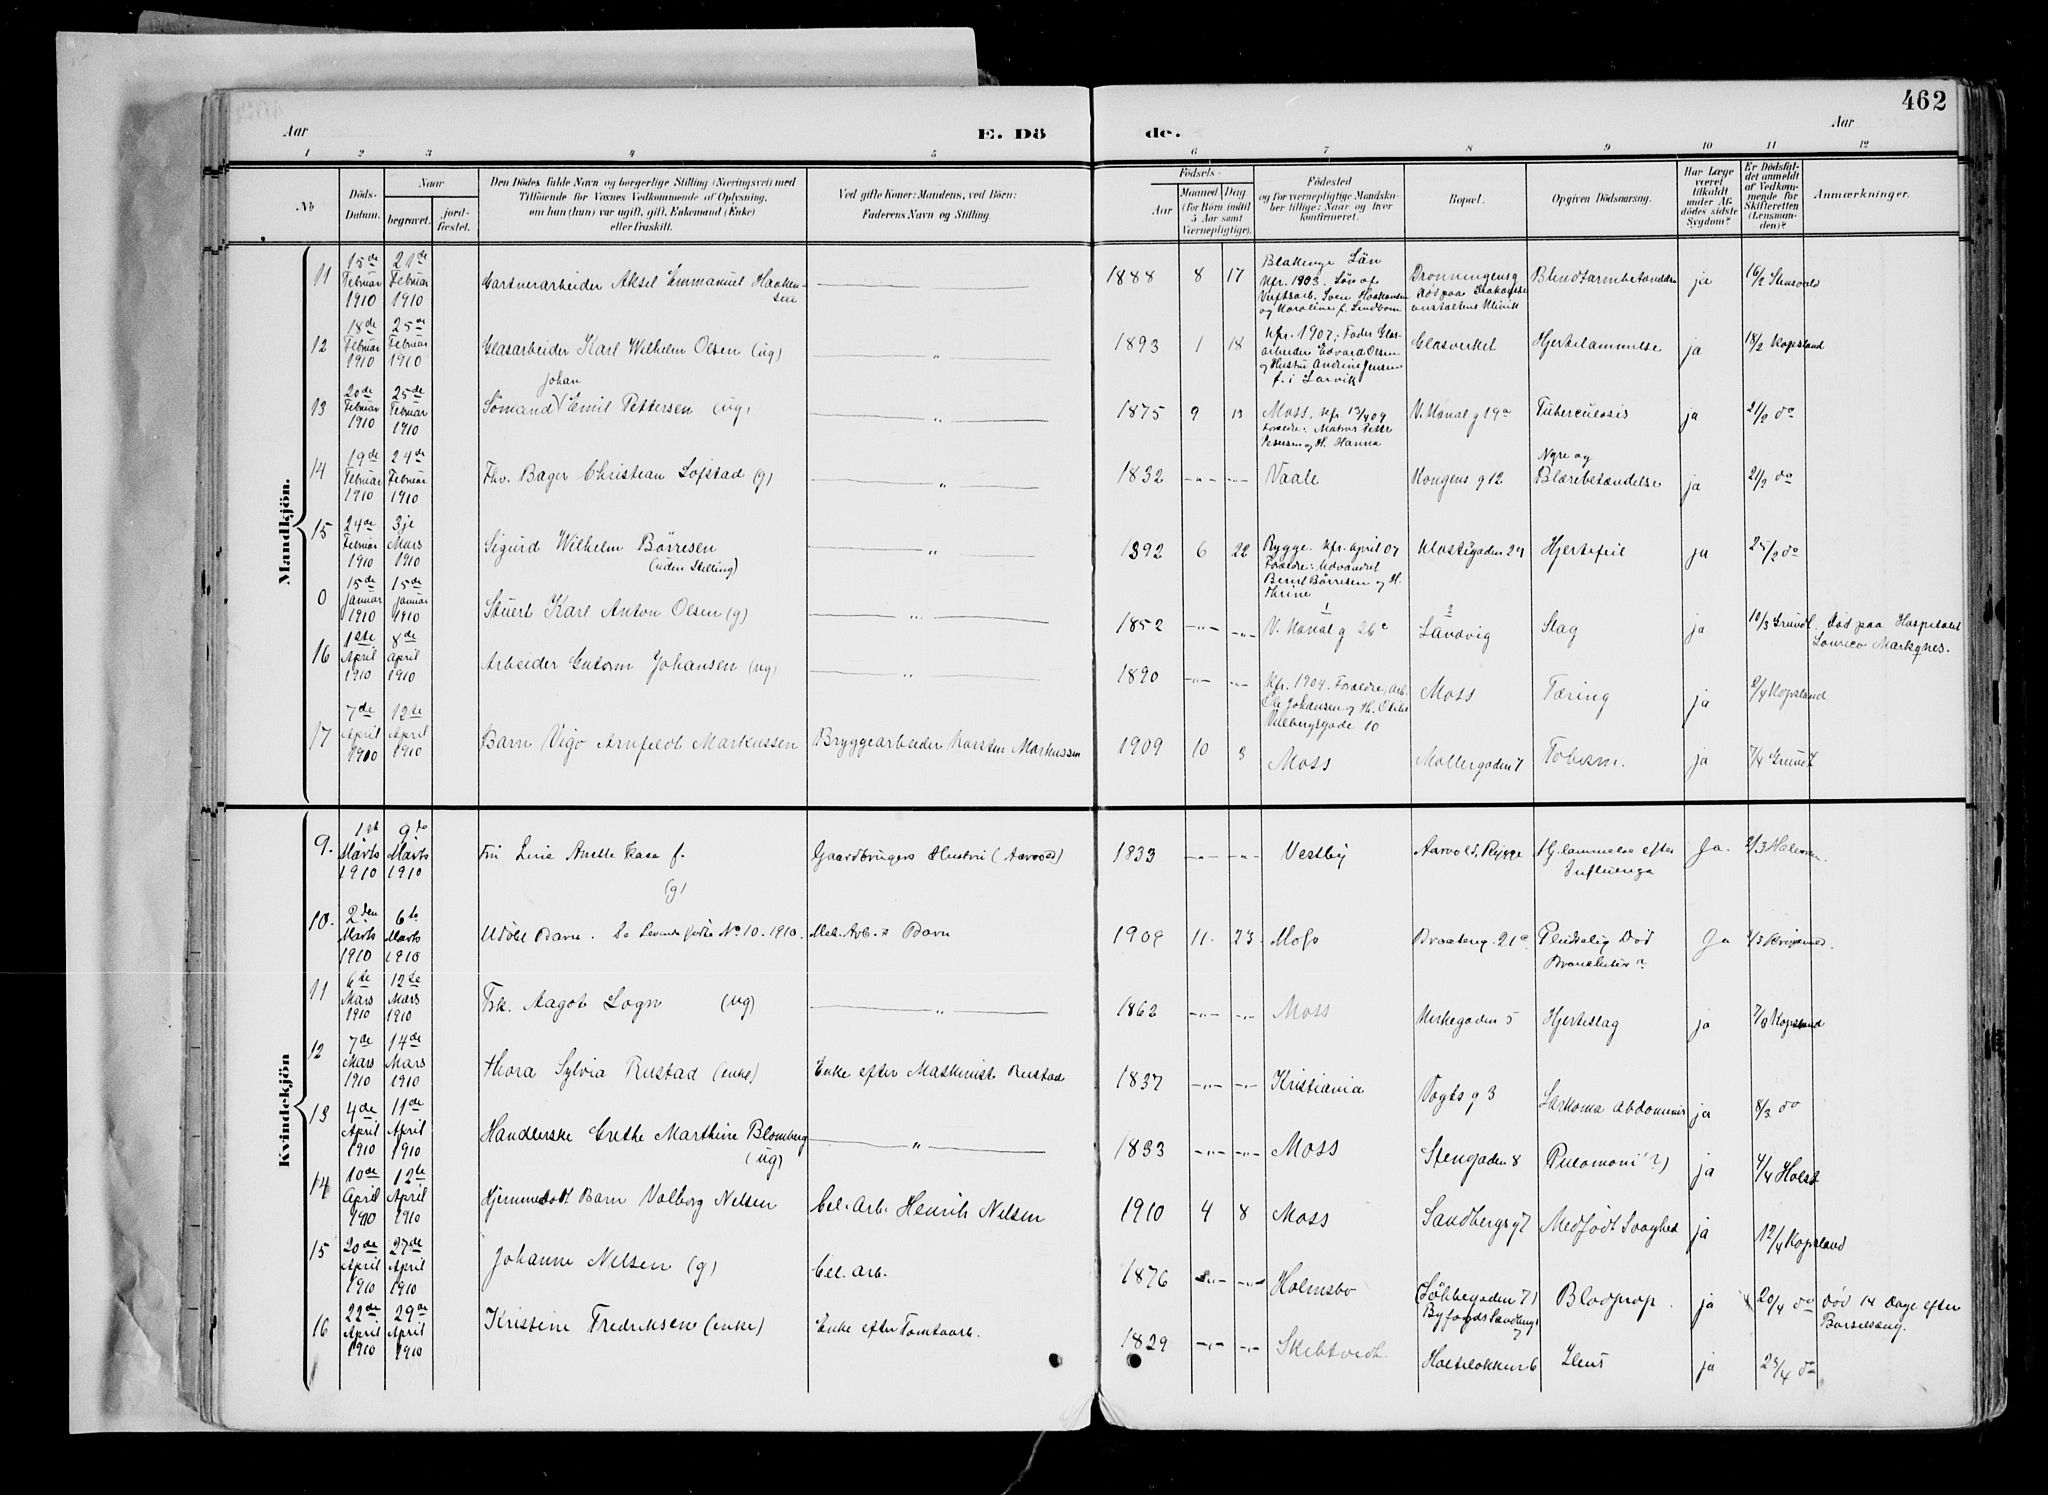 462
Aar
E. Dö
de.
Aar
1 2 3 4 5 6 7 8 9 10 11 12
No
Döds-Datum.
Naar
begravet.
jordfæstet.
Den Dödes fulde Navn og borgerlige Stilling (Næringsvei) med
Tilföiende for Voxnes Vedkommende af Oplysning,
om han (hun) var ugift, gift, Enkemand (Enke)
eller fraskilt.
Ved gifte Koner: Mandens, ved Börn:
Faderens Navn og Stilling.
Födsels-
Aar
Maaned
Dag
(for Börn indtil
5 Aar samt
Værnepligtige).
Födested
og for værnepligtige Mandskaber tillige: Naar og hvor
konfirmeret.
Bopæl.
Opgiven Dödsaarsag.
Har Læge
været
tilkaldt
under Afdödes sidste
Sygdom?
Er Dödsfaldet anmeldt
af Vedkommende for
Skifteretten
(Lensmanden)?
Anmærkninger.
Mandkjön.
11 15de Februar 1910 21de Februar 1910 Gartnerarbeider Aksel Emmanuel Haakensen 1888 8 17 Blekinge Län Kfr. 1903. Sön af Verftsarb. Sven Haakansen og Karoline f. Lindbom Dronningensg Död paa Klinik Blindtarmbetændelse ja 16/2 Stensvold
12 18de Februar 1910 25de Februar 1910 Glasarbeider Karl Wilhelm Olsen (ug) " 1893 1 18 Kfr. 1907; Fader Glasarbeider Edvard Olsen og Hustru Andrine Jensen f. i Larvik Glasverket Hjertelammelse ja 18/2 Kopsland
13 20de Februar 1910 25de Februar 1910 Sömand Johan Emil Pettersen (ug) " 1875 9 13 Moss. Forældre: Matros Peter og H. Hanna V. Kanal g 19a Tuberculosis ja 21/2 do
14 19de Februar 1910 24de Februar 1910 Fhv. Bager Christian Lofstad (g) " 1832 -"- -"- Vaale Kongens g 12 Nyre og Blærebetændelse ja 21/2 do
15 24de Februar 1910 3je Mars 1910 Sigurd Wilhelm Börresen (uden Stilling) " 1892 6 22 Rygge. Kfr. April 07 Forældre: Udvandret Bernt Börresen og H. Thrine Klostergaden 29 Hjertefeil ja 25/2 do
0 15de Januar 1910 15de Januar 1910 Stuert Karl Anton Olsen (g) " 1852 -"- -"- V. Kanal g 26c Sandvig Slag ja 10/3 Grundt. Död paa Hospitalet Marques.
16 1ste April 1910 8de April 1910 Arbeider Gutorm Johansen (ug) " 1890 -"- -"- Kfr. 1904. Forældre, Arb. Ole Johansen og H. Vulbergsgade 10 Moss Tæring ja 2/4 Kopsland
17 7de April 1910 12te April 1910 Barn Vigo Arnfeldt Markussen Bryggearbeider Karsten Markussen 1909 10 3 Moss Mollergaden 7 ja 7/4 Grundt
Kvindekjön
9. 1st Marts 1910 9de Marts 1910 Fru Anette f. (g) Gaardbrugers Hustru (Aarvold) 1833 -"- -"- Vestby Aarvold, Rygge Hj. lammelse efter Influenza Ja. 2/3
10. 2den Marts 1910 6te Marts 1910 Udöbt Barn. Se Levende födte No 10. 1910. Mek. Arb.s Barn 1909 11. 23. Moss 21c Pludselig Död Bronchitis? Ja
11 6te Mars 1910 12te Mars 1910 Frk. Aagot Sogn (ug) " 1862 -"- -"- Moss Kirkegaden 5 Hjerteslag ja 7/3 Kopsland
12 7de Mars 1910 14de Mars 1910 Thora Sylvia Rustad (enke) Enke efter Maskinist Rustad 1837 -"- -"- Kristiania Vogts g 3 Sarkoma abdominis ja 8/3 do
13 4de April 1910 11de April 1910 Handlerske Grethe Marthine Blomberg (ug) " 1833 -"- -"- Moss Stengaden 8 Pneomoni (?) ja 4/4 Holst
14 10de April 1910 12te April 1910 Hjemmedöbt Barn Valborg Nelsen Cel. Arb. Henrik Nelsen 1910 4 8 Moss Sandbergsg 7 Medfödt Svaghed ja 12/4 Kopsland
15 20de April 1910 27de April 1910 Johanne Nelsen (g) Cel. arb. 1876 -"- -"- Holmsbo Blodprop. ja 20/4 do död 14 Dage efter Barselseng.
16 22de April 1910 29de April 1910 Kristine Fredriksen (enke) Enke efter Tomtaarb. 1829 -"- -"- Skibtvedt. 6 Ileus ja 23/4 do